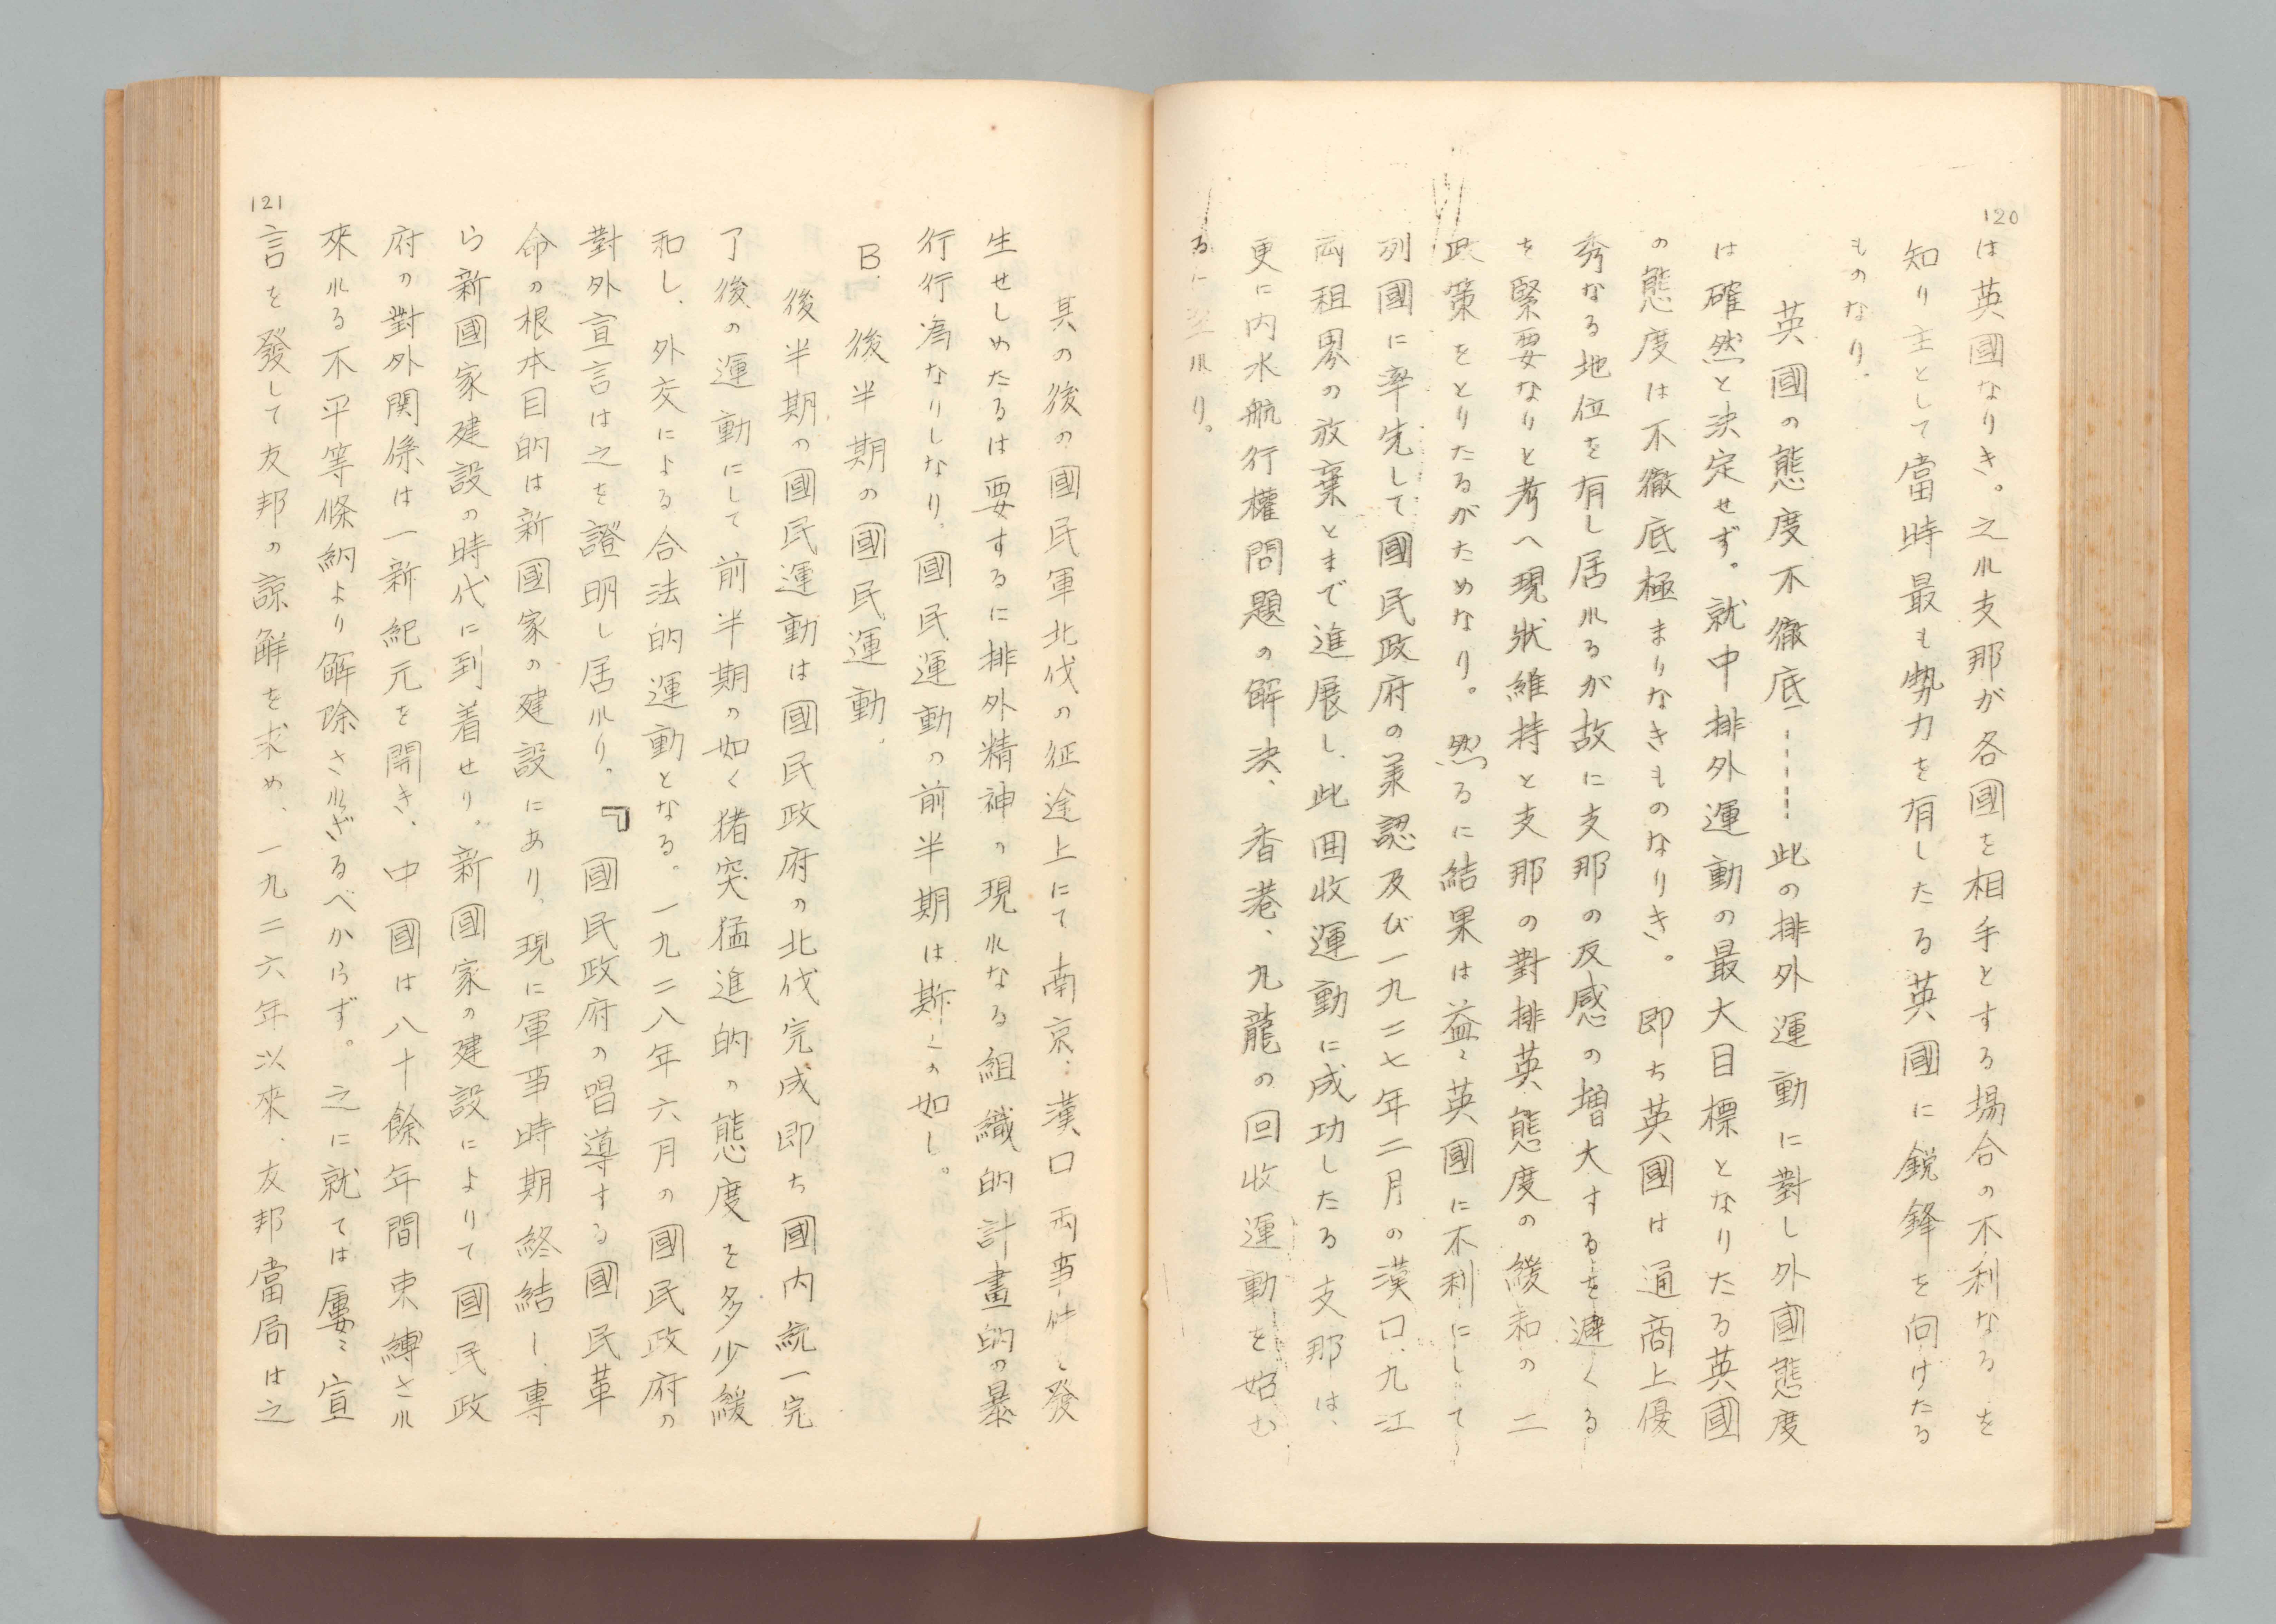 120
は英國なりき。之れ支那が各國を相手とする場合の不利なるを
知り主として當時最も勢力を有したる英國に鋭鋒を向けたる
ものなり。
英國の態度不徹底-----此の排外運動に對し外國態度
は確然と決定せず。就中排外運動の最大目標となりたる英國
の態度は不徹底極まりなきものなりき。即ち英國は通商上優
秀なる地位を有し居れるが故に支那の反感の増大するを避くる
を緊要なりと考へ現狀維持と支那の對排英態度の緩和の二
政策をとりたるがためなり。然るに結果は益〻英國に不利にして
列國に率先して國民政府の承認及び一九二七年二月の漢口、九江
両租界の放棄とまで進展し、此回收運動に成功したる支那は、
更に内水航行權問題の解決、香港、九龍の回收運動を始む
るに至れり。
其の後の國民軍北伐の征途上にて南京:漢口両事件を發
生せしめたるは要するに排外精神の現れなる組織的計畫的の暴
行行為なりしなり。國民運動の前半期は斯くの如し。
B. 後半期の國民運動.
後半期の國民運動は國民政府の北伐完成即ち國内統一完
了後の運動にして前半期の如く猪突猛進的の態度を多少緩
和し、外交による合法的運動となる。一九二八年六月の國民政府の
對外宣言は之を證明し居れり。『國民政府の唱導する國民革
命の根本目的は新國家の建設にあり、現に軍事時期終結し、專
ら新國家建設の時代に到着せり。新國家の建設によりて國民政
府の對外関係は一新紀元を開き、中國は八十餘年間束縛され
來れる不平等條納より解除されざるべからず。之に就ては屢〻宣
121
言を發して友邦の諒解を求め、一九二六年以來、友邦當局は之